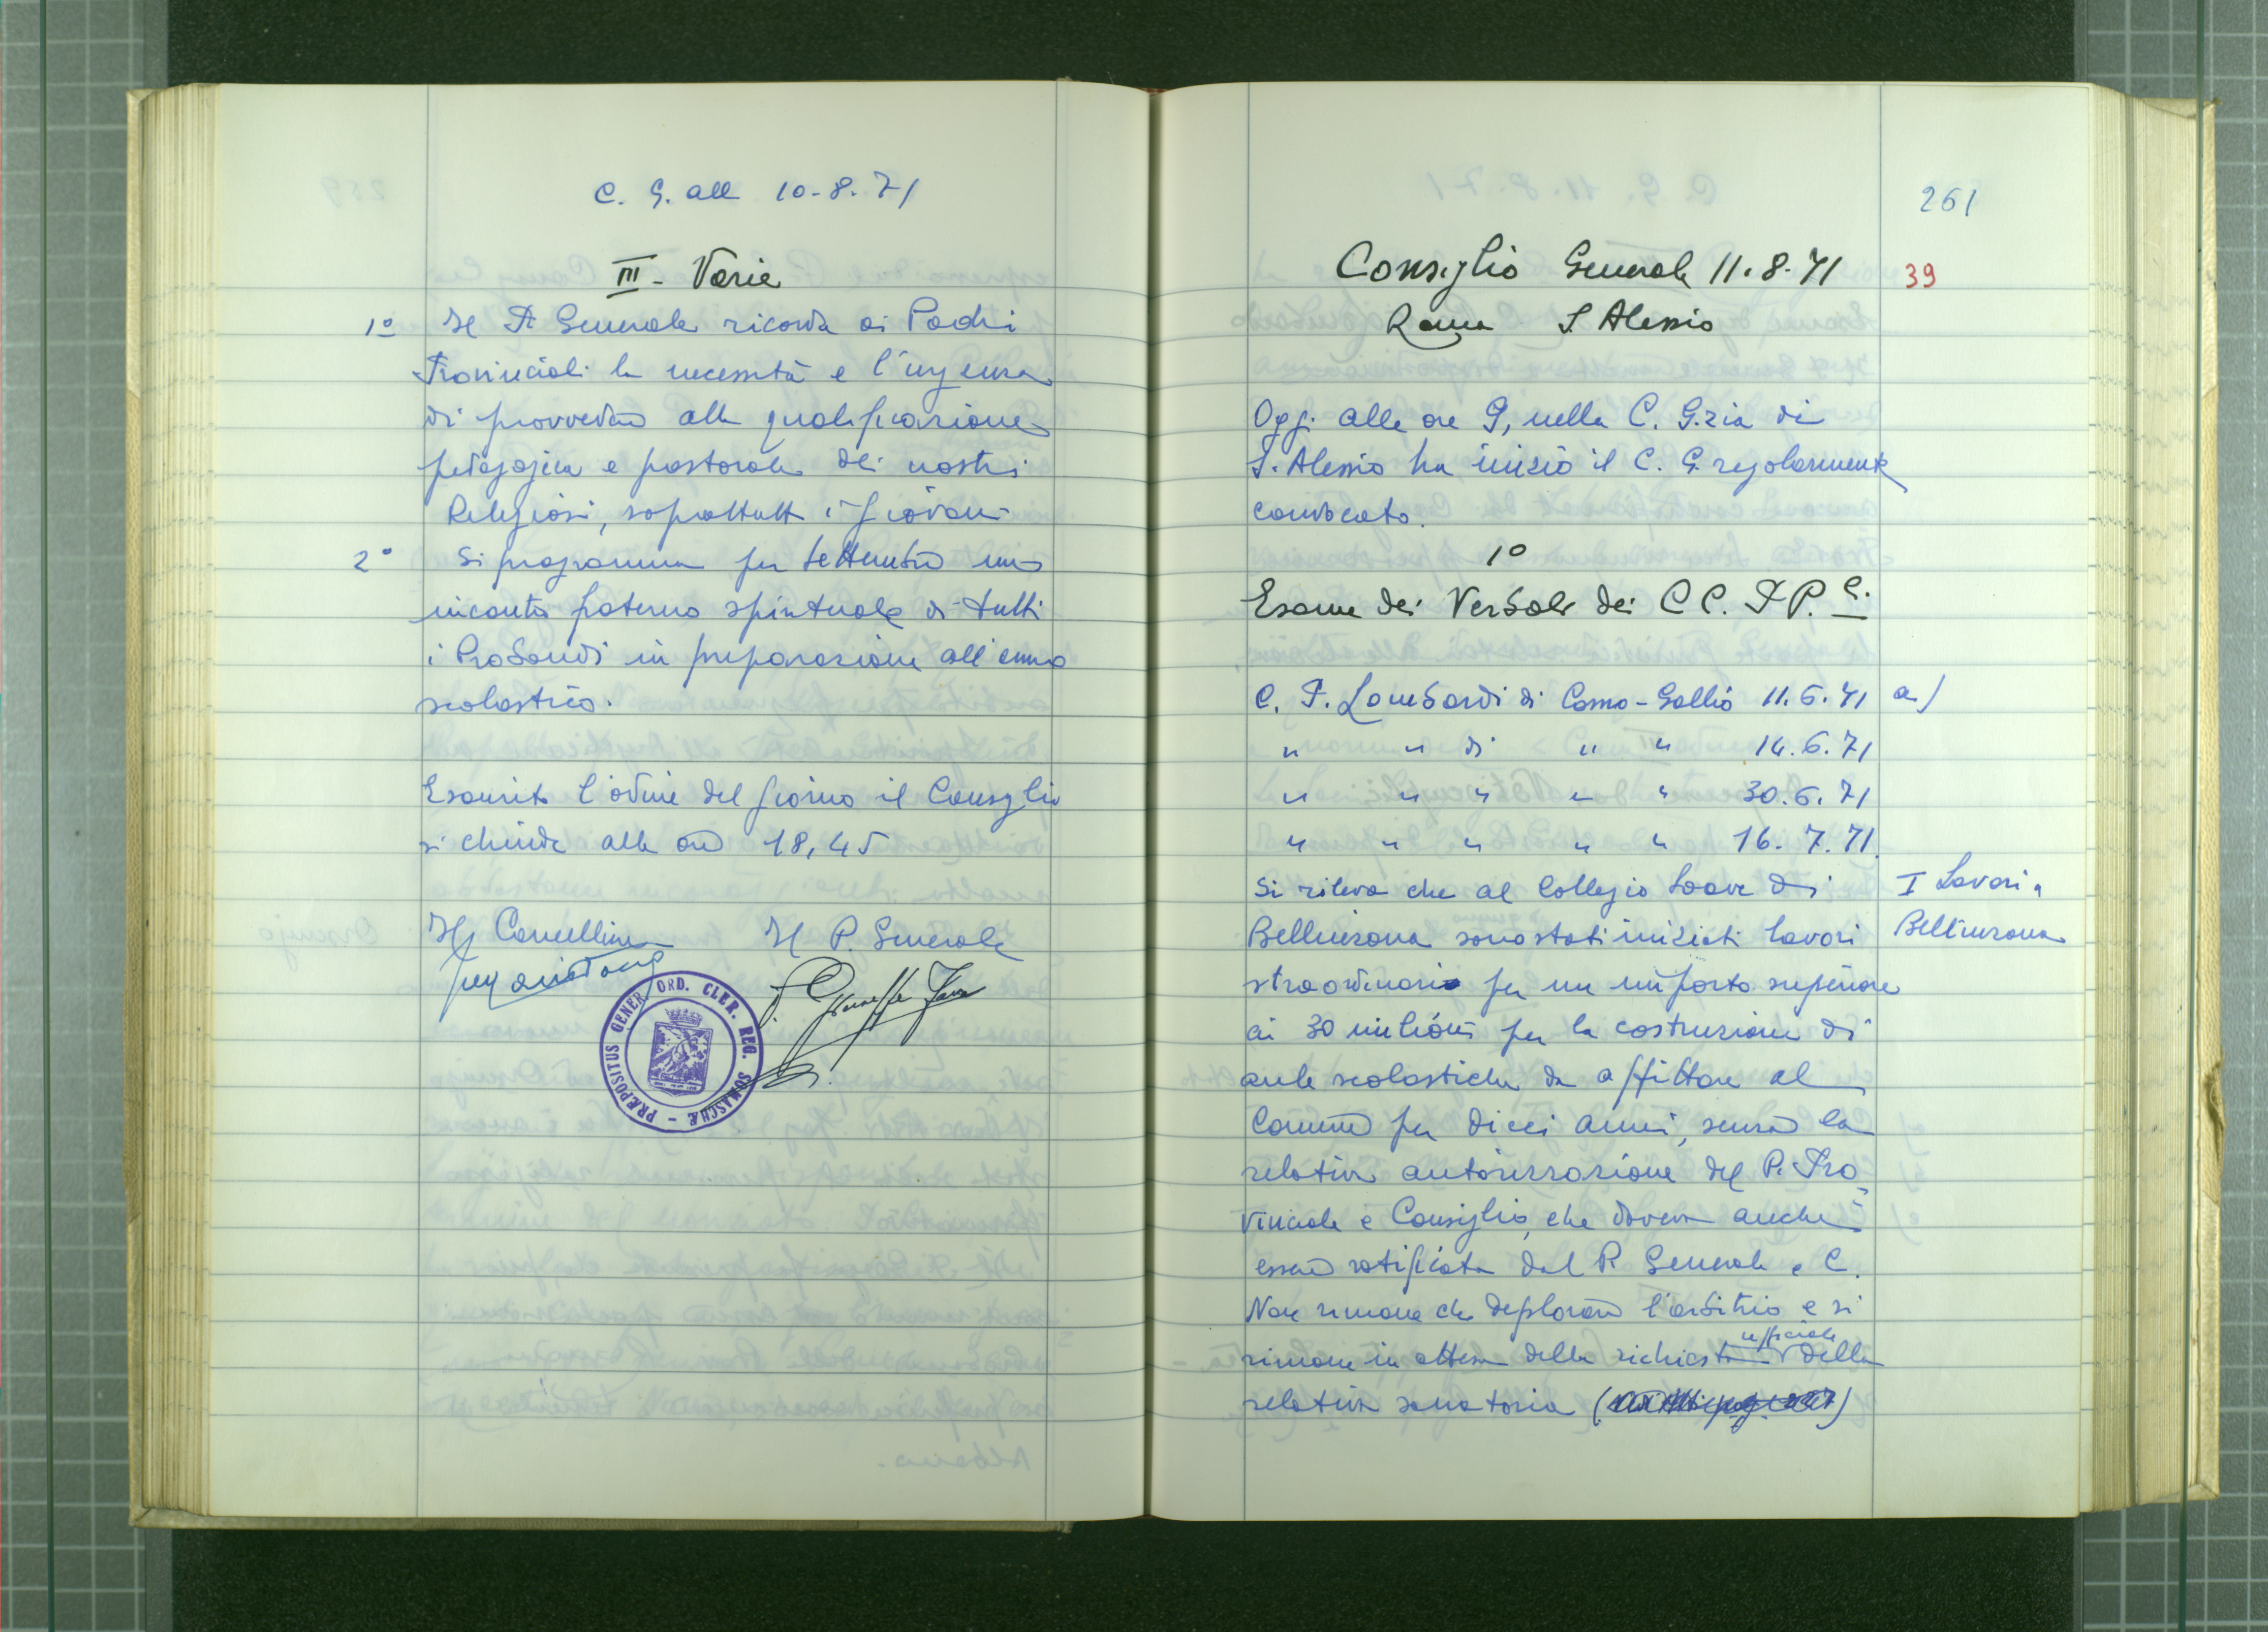 C. G. all 10-8-71
III - Varie
1º Il P. Generale ricorda ai Padri
Provinciali la necessità e l'urgenza
di provvedere alla qualificazione
pedagogica e pastorale dei nostri
Religiosi, soprattutto i giovani
2º Si programma per settembre un
incontro paterno spirituale di tutti
i Probandi in preparazione all'anno
scolastico.
Esaurito l'ordine del giorno il Consiglio
si chiude alle ore 18,45
Il Cancelliere Il P. Generale
PRÆPOSITUS GENER. ORD. CLER. REG. SOMASCHÆ
261
Consiglio Generale 11.8.71 39
Roma S. Alessio
Oggi alle ore 9, nella C. G.zia di
S. Alessio ha inizio il C. G. regolarmente
convocato.
1º
Esame dei Verbali dei CC. PP.
C. P. Lombardi di Como-Gallio 11.6.71 a)
" " di " " 14.6.71
" " " " " 30.6.71
" " " " " 16.7.71.
Si rileva che al Collegio Soave di I Lavori a
Bellinzona sono stati iniziati lavori Bellinzona
straordinari per un importo superiore
ai 30 milioni per la costruzione di
aule scolastiche da affittare al
Comune per dieci anni, senza la
relativa autorizzazione del P. Pro=
vinciale e Consiglio, che doveva anche
essere ratificata dal P. Generale e C.
Non rimane che deplorare l'arbitrio e si
rimane in attesa della richiesta ufficiale della
relativa sanatoria